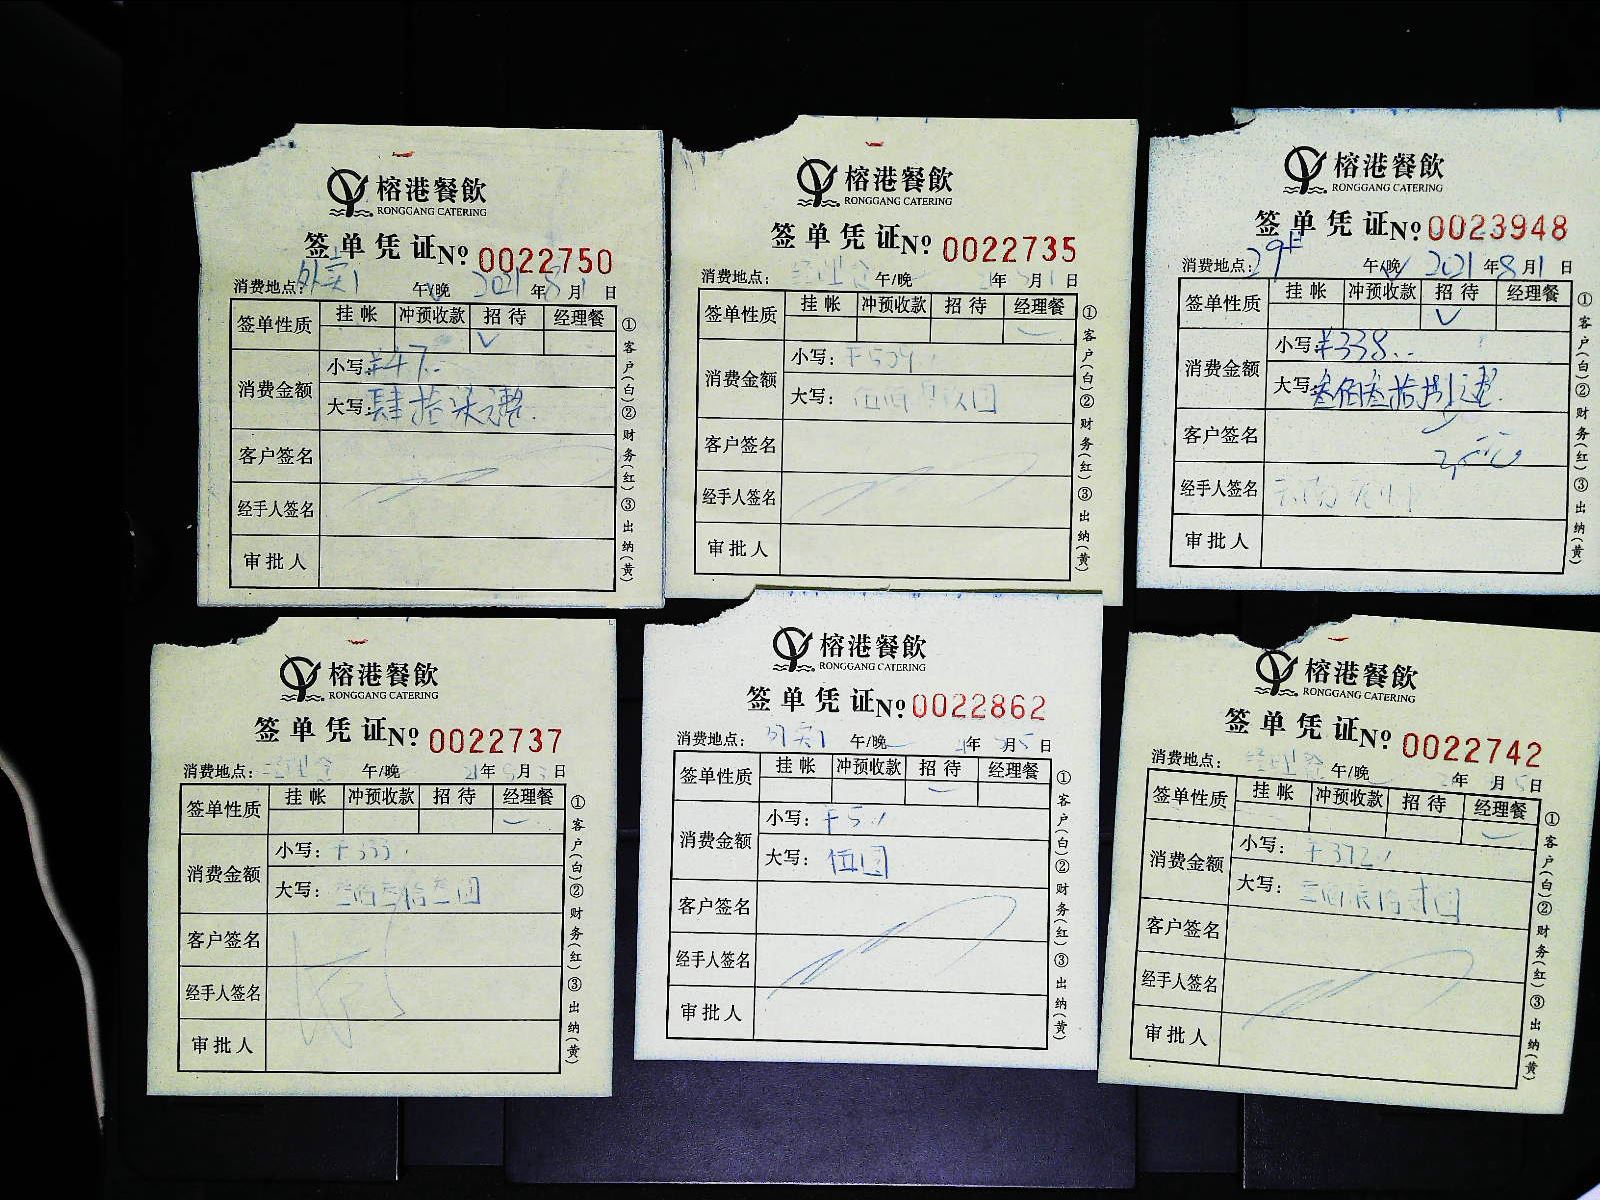 榕港餐飲
RONGGANG CATERING
签单凭证№ 0022750
消费地点：外卖1 午/晚 2021年8月1日
签单性质 挂帐 冲预收款 招待 经理餐
✓
消费金额 小写：¥47..
大写：肆拾柒元整.
客户签名
经手人签名
审批人
①客户(白)②财务(红)③出纳(黄)
榕港餐飲
RONGGANG CATERING
签单凭证№ 0022735
消费地点： 午/晚 年 月1日
签单性质 挂帐 冲预收款 招待 经理餐
消费金额 小写：
大写：
客户签名
经手人签名
审批人
①客户(白)②财务(红)③出纳(黄)
榕港餐飲
RONGGANG CATERING
签单凭证№ 0023948
消费地点：29# 午/晚 2021年8月1日
签单性质 挂帐 冲预收款 招待 经理餐
✓
消费金额 小写：¥338..
大写：叁佰叁拾捌元整.
客户签名
经手人签名
审批人
①客户(白)②财务(红)③出纳(黄)
榕港餐飲
RONGGANG CATERING
签单凭证№ 0022737
消费地点： 午/晚 21年 月 日
签单性质 挂帐 冲预收款 招待 经理餐
消费金额 小写：333
大写：叁佰叁拾叁圆
客户签名
经手人签名
审批人
①客户(白)②财务(红)③出纳(黄)
榕港餐飲
RONGGANG CATERING
签单凭证№ 0022862
消费地点：外卖1 午/晚 年 月5日
签单性质 挂帐 冲预收款 招待 经理餐
消费金额 小写：5
大写：伍圆
客户签名
经手人签名
审批人
①客户(白)②财务(红)③出纳(黄)
榕港餐飲
RONGGANG CATERING
签单凭证№ 0022742
消费地点： 午/晚 年 月5日
签单性质 挂帐 冲预收款 招待 经理餐
消费金额 小写：372
大写：
客户签名
经手人签名
审批人
①客户(白)②财务(红)③出纳(黄)